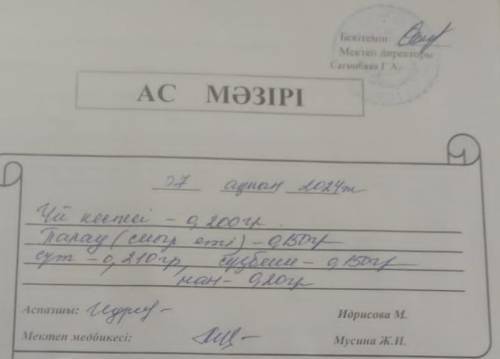 Бекітемін
Мектеп директоры
Сагынбаева Г.А.
АС МӘЗІРІ
27 ақпан 2024ж
Үй кеспесі - 0,200гр
Палау (сиыр еті) - 0,150гр
сүт - 0,210гр, сузбеше - 0,150гр
нан - 020гр
Аспазшы: Идрис- Идрисова М.
Мектеп медбикесі: Мусина Ж.И.